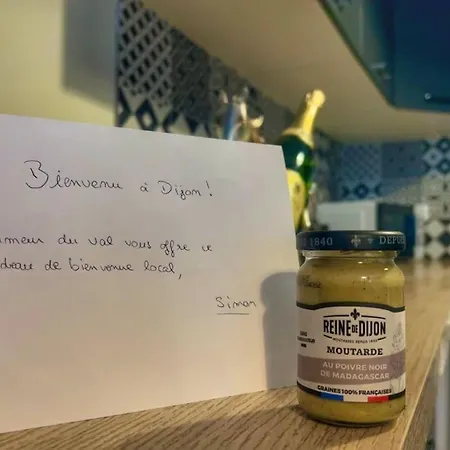 Bienvenu à Dijon !
du val vous offre ce
de bienvenue local,
Simon
1840 DEPUIS
REINE DE DIJON
MOUTARDES DEPUIS 1840
MOUTARDE
AU POIVRE NOIR
DE MADAGASCAR
GRAINES 100% FRANÇAISES